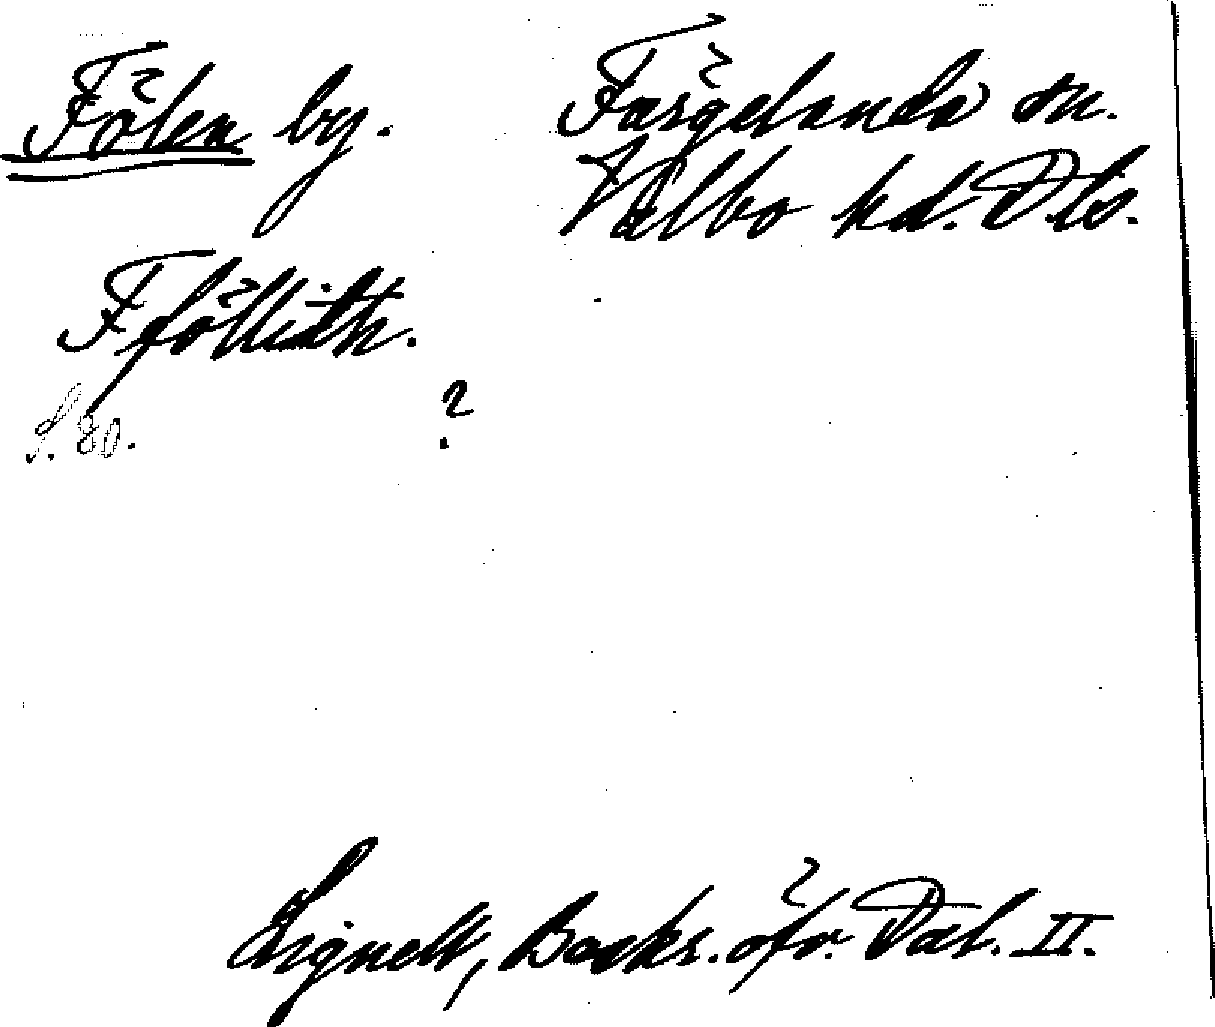 Fölen by. Färgelanda sn.
Valbo hd. Dls.
Fföllidh.
S. 80. ?
Lignell, Beskr. öfv. Dal. II.